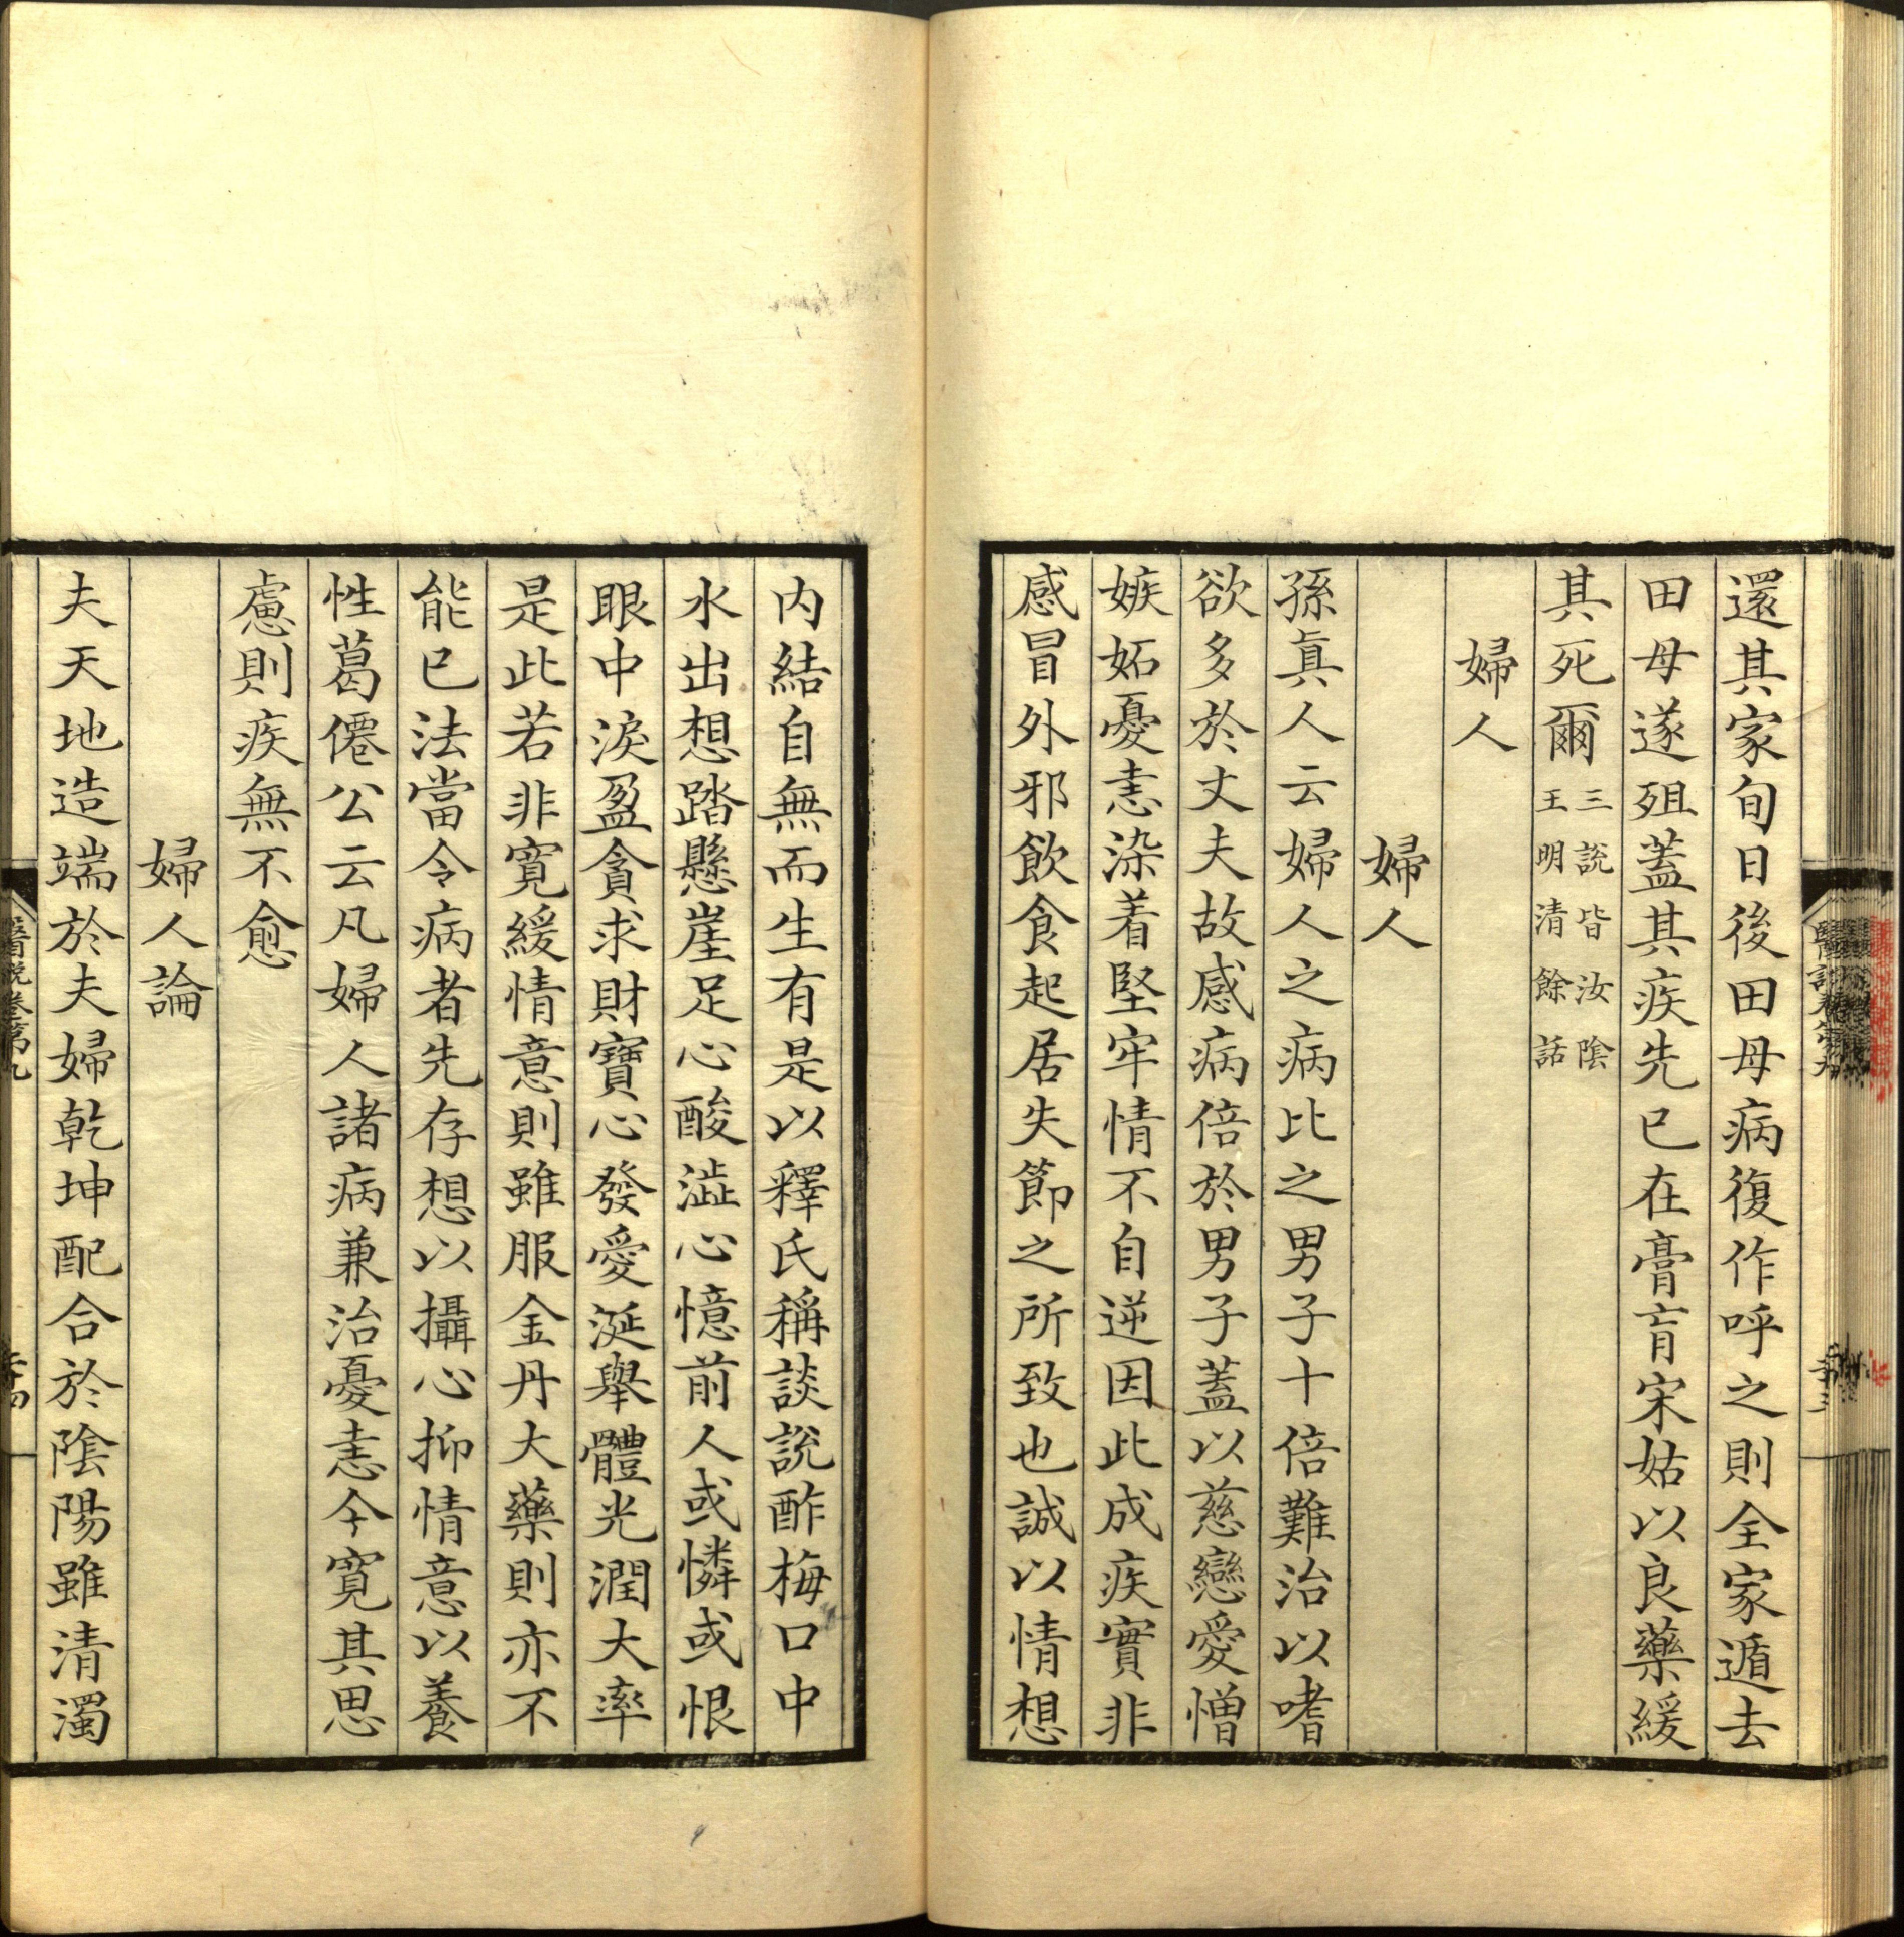 還其家旬日後田母病復作呼之則全家遁去
田母遂殂蓋其疾先已在膏肓宋姑以良藥緩
其死爾三說皆汝陰王明清餘話
婦人
婦人
孫真人云婦人之病比之男子十倍難治以嗜
欲多於丈夫故感病倍於男子蓋以慈戀愛憎
嫉妬憂恚染着堅牢情不自逆因此成疾實非
感冒外邪飲食起居失節之所致也誠以情想
內結自無而生有是以釋氏稱談說酢梅口中
水出想踏懸崖足心酸澁心憶前人或憐或恨
眼中淚盈貪求財寶心發愛涎舉體光潤大率
是此若非寬緩情意則雖服金丹大藥則亦不
能已法當令病者先存想以攝心抑情意以養
性葛僊公云凡婦人諸病兼治憂恚令寬其思
慮則疾無不愈
婦人論
夫天地造端於夫婦乾坤配合於陰陽雖清濁
醫說卷第九